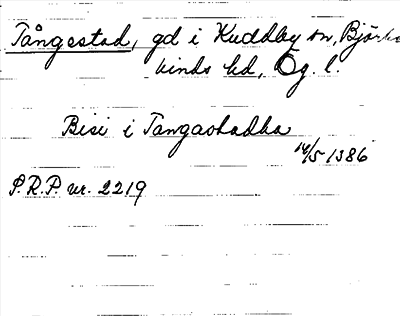 Tångestad, gd i Kuddby sn, Björke
kinds hd, Ög. l.
Bisi i Tangastadha
14/5 1386
S.R.P. nr. 2219